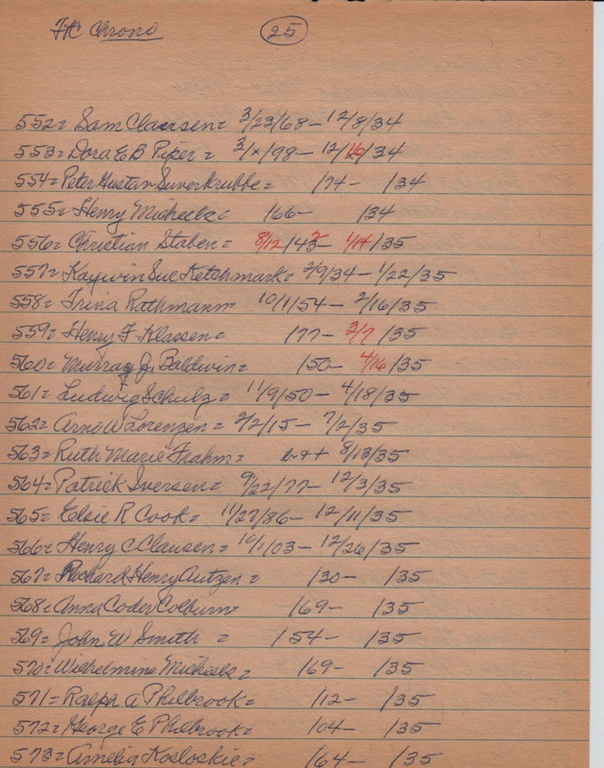 FC Chrono 25
552= Sam Clausen= 3/23/68- 12/8/34
553= Dora E B Piper = 3/x/98- 12/16/34
554= Peter Gustav Suverkrubbe= /74- /34
555= Henry Micheels= /66- /34
556= Christian Staben= 8/12/43- 1/14/35
557= Kaywin Sue Ketchmark= 2/9/34- 1/22/35
558= Trina Rathmann= 10/1/54- 2/16/35
559= Henry F Klassen= /77- 3/7/35
560= Murray J. Baldwin= /50- 4/16/35
561= Ludwig Schulz= 11/9/50- 4/18/35
562= Arno W Lorenzen= 2/2/15- 7/2/35
563= Ruth Marie Frahm= b++ 8/13/35
564= Patrick Iversen= 9/22/77- 12/3/35
565= Elsie R Cook= 11/27/86- 12/11/35
566= Henry C Clausen= 10/1/03- 12/26/35
567= Richard Henry Autzen= /30- /35
568= Anna Coder Colburn= /69- /35
569= John W Smith = /54- /35
570= Wilhelmine Micheels= /69- /35
571= Ralph A Philbrook= /12- /35
572= George E Philbrook= /04- /35
573= Amelia Kosloskie= /64- /35